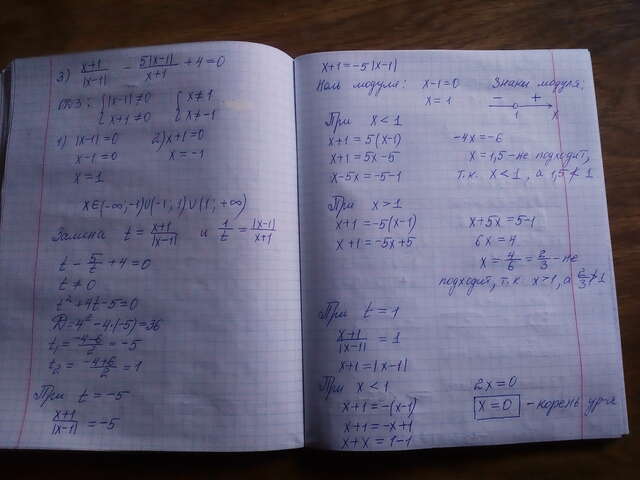 3) (x+1)/|x-1| - 5|x-1|/(x+1) + 4 = 0
ОДЗ: { |x-1| ≠ 0 { x ≠ 1
x+1 ≠ 0 x ≠ -1
1) |x-1| = 0 2) x+1 = 0
x-1 = 0 x = -1
x = 1
x ∈ (-∞; -1) ∪ (-1; 1) ∪ (1; +∞)
Замена t = (x+1)/|x-1| и 1/t = |x-1|/(x+1)
t - 5/t + 4 = 0
t ≠ 0
t² + 4t - 5 = 0
D = 4² - 4·(-5) = 36
t₁ = (-4-6)/2 = -5
t₂ = (-4+6)/2 = 1
При t = -5
(x+1)/|x-1| = -5
x+1 = -5|x-1|
Ноль модуля: x-1 = 0 Знаки модуля:
x = 1 - + 1 x
При x < 1
x+1 = 5(x-1) -4x = -6
x+1 = 5x-5 x = 1,5 - не подходит,
x-5x = -5-1 т.к. x < 1, а 1,5 ≮ 1
При x > 1
x+1 = -5(x-1) x+5x = 5-1
x+1 = -5x+5 6x = 4
x = 4/6 = 2/3 - не
подходит, т.к. x > 1, а 2/3 ≯ 1
При t = 1
(x+1)/|x-1| = 1
x+1 = |x-1|
При x < 1 2x = 0
x+1 = -(x-1) x = 0 - корень ур-я
x+1 = -x+1
x+x = 1-1